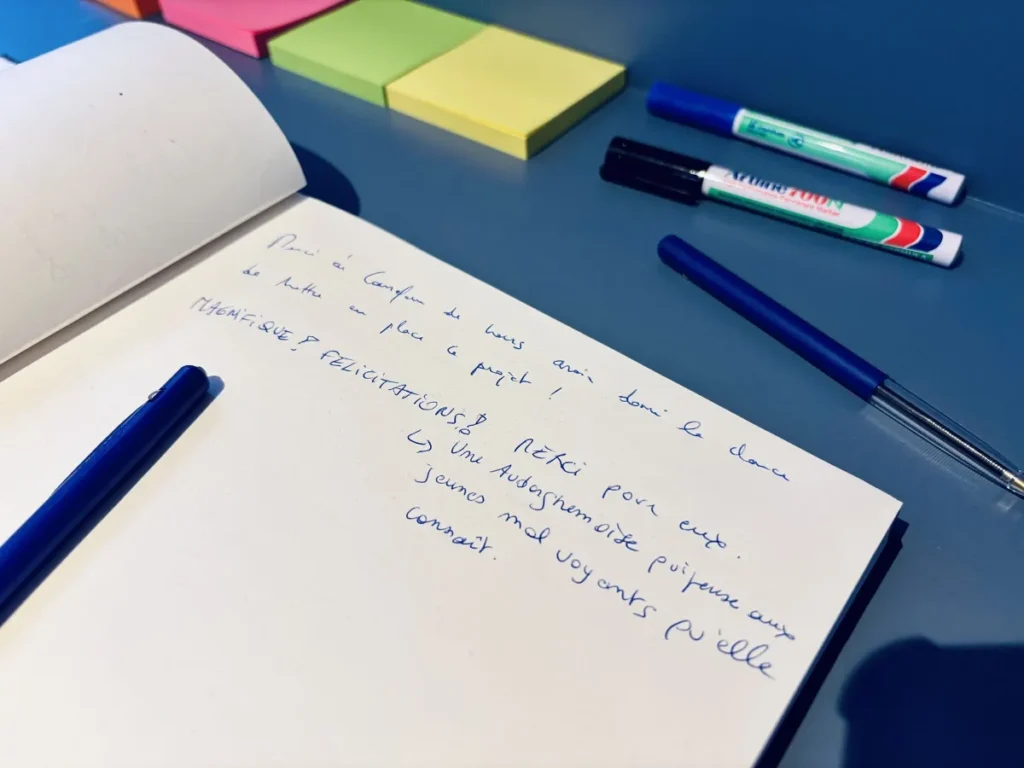 Merci à de nous avoir donné la chance
de mettre en place ce projet !
MAGNIFIQUE! FELICITATIONS! MERCI pour eux.
↳ Une Auderghemoise qui pense aux
jeunes mal voyants qu'elle
connaît.
Artline 700N